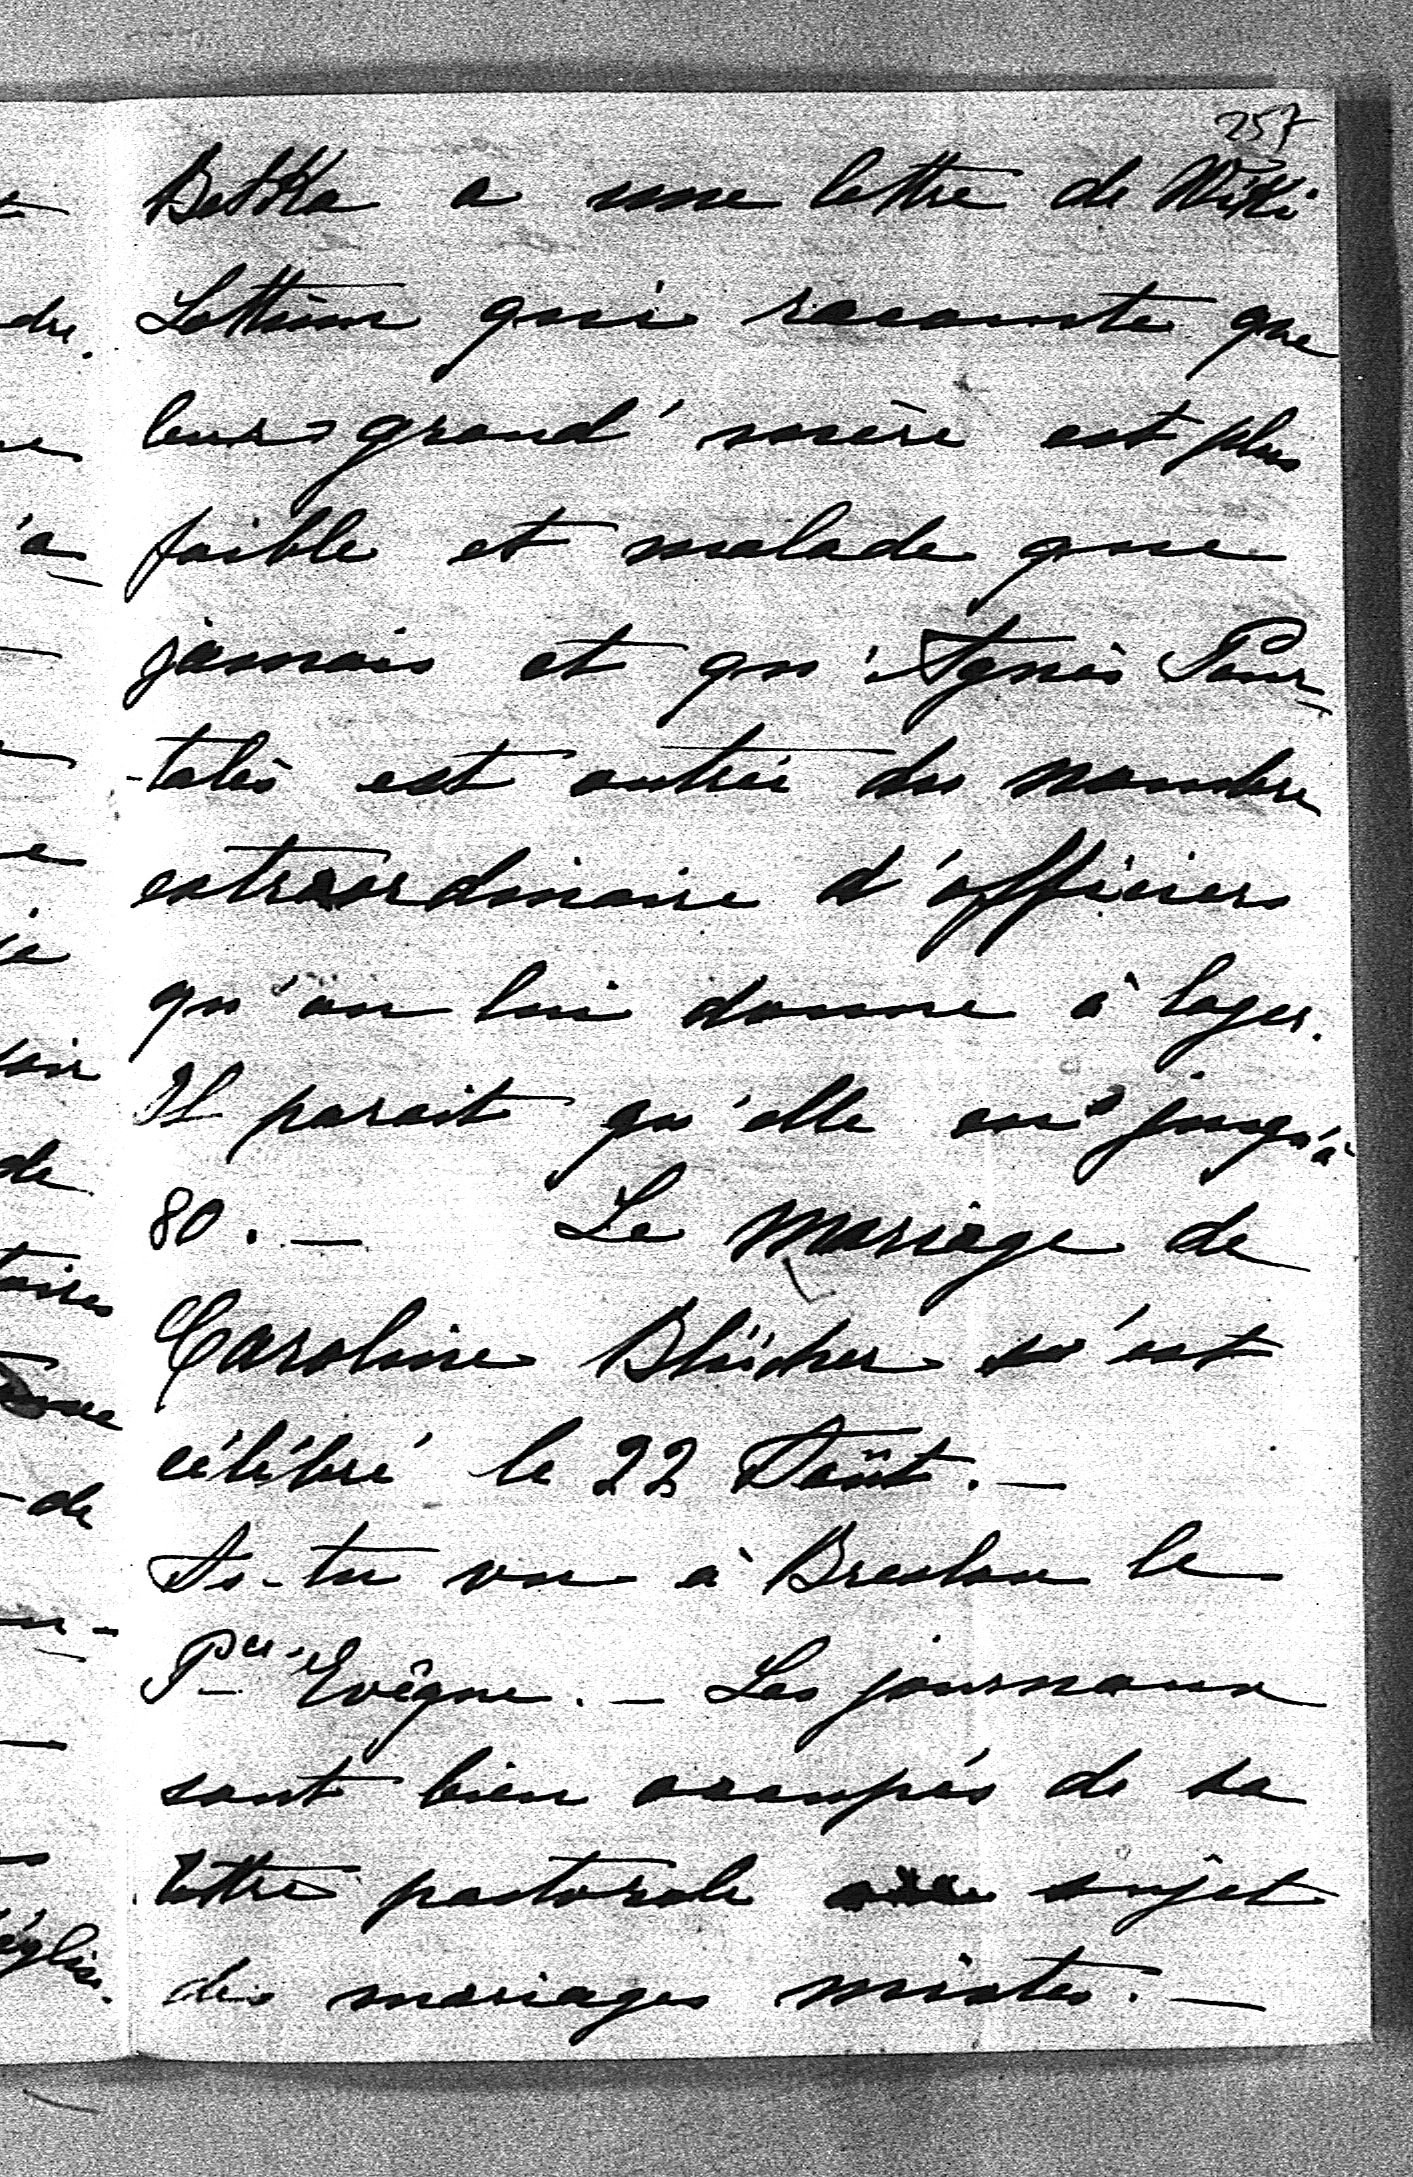 257
Betka a une lettre de Niki
Lottum qui raconte que
leur grand'mère est plus
faible et malade que
jamais et qu'Agnès Pour
-talès est outrée du nombre
extraordinaire d'officiers
qu'on lui donne à loger.
Il parait qu'elle en a jusqu'à
80. — Le mariage de
Caroline Blücher s'est
célébré le 22 Août. —
As-tu vu à Breslau le
Pce Evêque. — Les journaux
sont bien occupés de sa
lettre pastorale sujet
des mariages mixtes. —